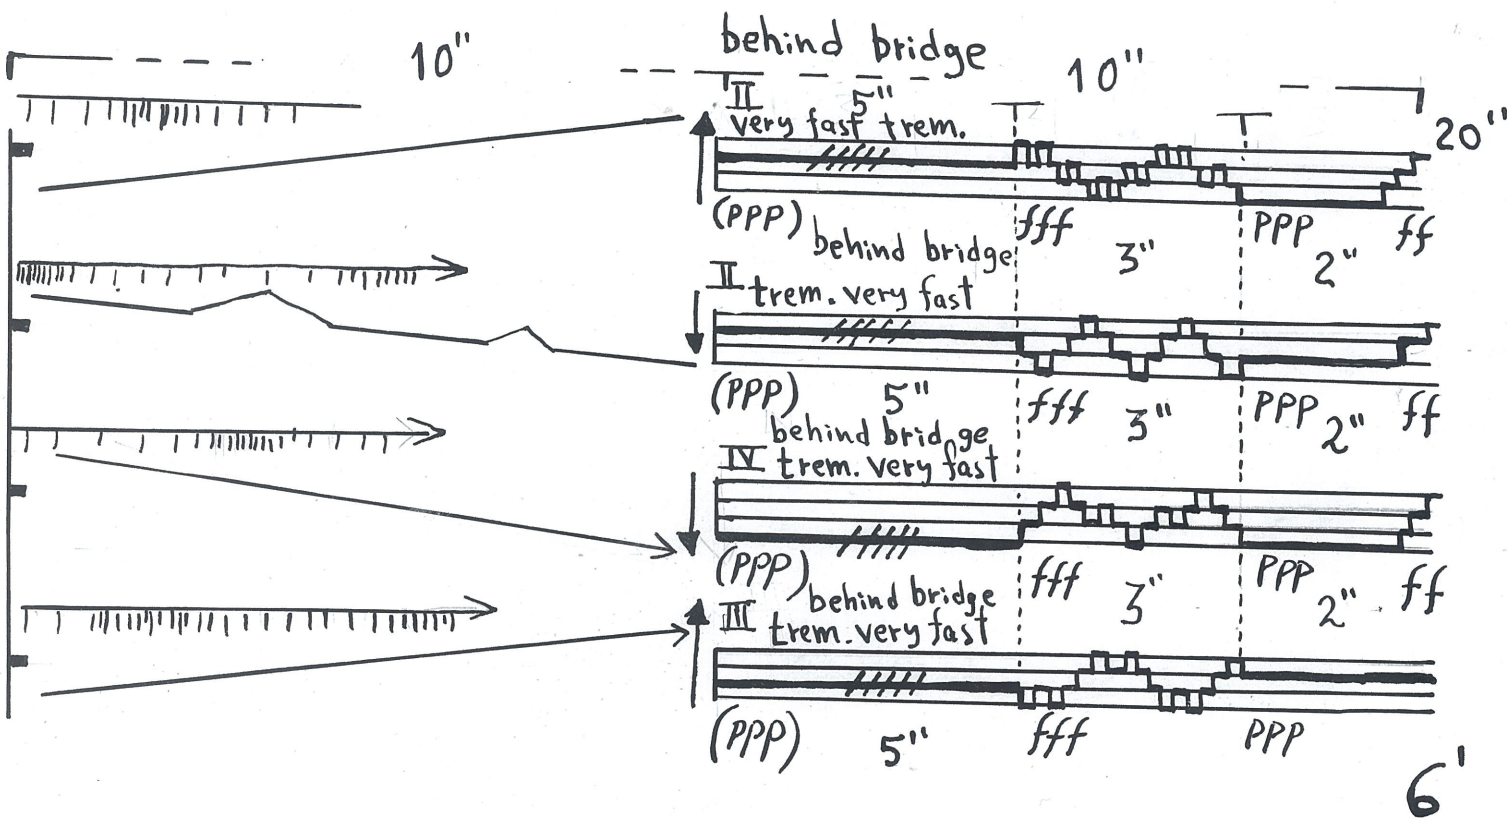 10"
behind bridge
10"
II 5"
very fast trem.
20"
(PPP) fff PPP ff
3" 2"
behind bridge
II trem. very fast
(PPP) 5" fff 3" PPP 2" ff
behind bridge
IV trem. very fast
(PPP) fff 3" PPP 2" ff
behind bridge
III trem. very fast
(PPP) 5" fff PPP
6'